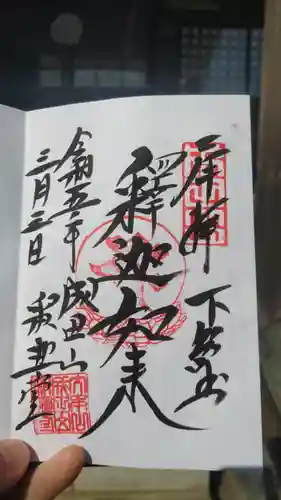 奉拝
下総国
釈迦如来
成田山
釈迦堂
令和五年
三月三日